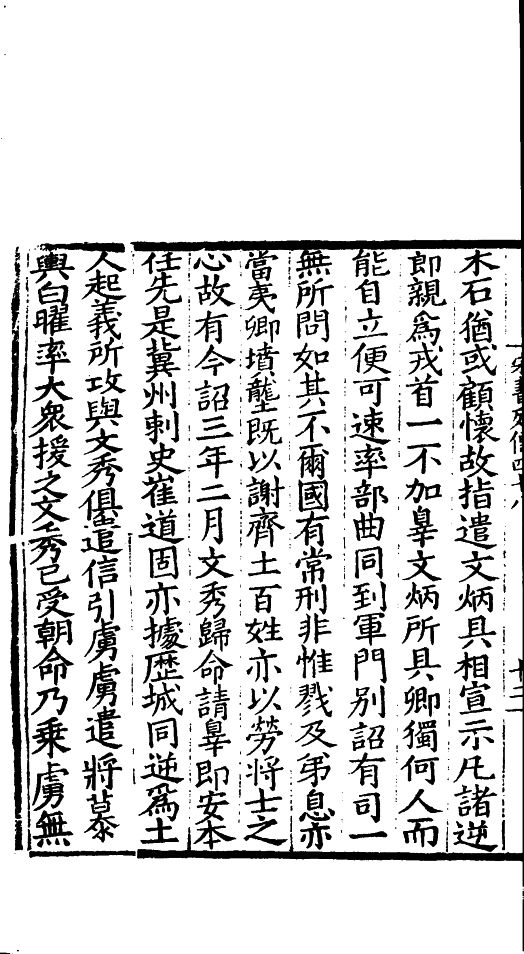 木石猶或顧懷故指遣文炳具相宣示凡諸逆
郎親爲戎首一不加辠文炳所具卿獨何人而
能自立便可速率部曲同到軍門别詔有司一
無所問如其不爾國有常刑非惟戮及弟息亦
當夷卿墳壟既以謝齊土百姓亦以勞將士之
心故有今詔三年二月文秀歸命請辠即安本
任先是冀州刺史崔道固亦據歷城同逆爲土
人起義所攻與文秀俱遣信引虜虜遣將慕
輿白曜率大衆援之文秀已受朝命乃乘虜無